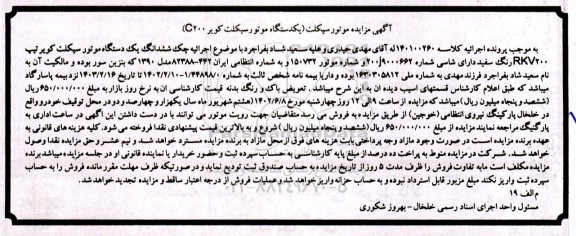 آگهی مزایده موتور سیکلت (یکدستگاه موتور سیکلت کویر C۲۰۰)
به موجب پرونده اجرائیه کلاسه ۱۴۰۱۰۰۲۶۰له آقای مهدی حیدری وعلیه سعید شاد بفراجرد با موضوع اجرائیه چک ششدانگ یک دستگاه موتور سیکلت کویر تیپ
RKV۲۰۰رنگ سفید دارای شاسی شماره ۲۰۰j۹۰۰۰۶۶۲و شماره موتور ۱۵۰۷۳۲ و به شماره انتظامی ایران ۴۴۲-۸۲۳۸۸مدل ۱۳۹۰ که بنزین سوز بوده و مالکیت آن به
نام سعید شاد بفراجرد فرزند مهدی به شماره ملی ۱۶۳۰۳۰۵۸۱۲بوده و دارها بیمه نامه شخص ثالث به شماره ۱/۴۴۸۹۸/۰-۱۴۰۲/۲/۱۰ تا تاریخ ۱۴۰۳/۲/۱۶ نزد بیمه پاسارگاد
میباشد که طبق اعلام کارشناس قسمتهای آسیب دیده ان به این شرح میباشد . تعویض باک و رنگ بدنه قیمت کارشناسی ان به نرخ روز بازار به مبلغ ۶۵۰/۰۰۰/۰۰۰ ریال
(ششصد و پنجاه میلیون ریال )میباشد که مزایده از ساعت ۹ الی ۱۲ روز چهارشنبه مورخ ۱۴۰۲/۶/۸(هشتم شهریور ماه سال یکهزار و چهارصد و دو در محل توقیف خودرو واقع
در خلخال پارکینگ انتظامی (خوجین) از طریق مزایده به فروش می رسد متقاضیان جهت رویت موتور می توانند با در دست داشتن این آگهی در ساعت اداری به
پارکینگ مراجعه نمایند مزایده از مبلغ ۶۵۰/۰۰۰/۰۰۰ ریال (ششصد و پنجاه میلیون ریال ) شروع و به بالاترین قیمت پیشنهادی نقدا فروخته می شود. کلیه هزینه های قانونی به
عهده برنده مزایده است در صورت وجود مازاد وجه پرداختی بابت هزینه های فوق از محل مازاد به برنده مزایده مسترد خواهد شد. و نیم عشر و حق مزایده نقدا وصول
خواهد شد. شرکت در مزایده منوط به پراخت ده درصد از مبلغ پایه کارشناسی به حساب سپرده ثبت و حضور خریدار یا نماینده قانونی او در جلسه مزایده میباشد برنده
مزایده مکلف است مابه تفاوت فروش را ظرف مدت ۵ روز از تاریخ مزایده به حساب صندوق ثبت تودیع نماید و در صورتیکه ظرف مهلت مقرر مانده فروش را به حساب
سپرده ثبت واریز نکند مبلغ مزبور قابل استرداد نبوده و به حساب خزانه واریز خواهد شد و عملیات فروش از درجه اعتبار ساقط و مزایده تجدید خواهد شد.
م الف ۱۹
مسئول واحد اجرای اسناد رسمی خلخال - بهروز شکوری